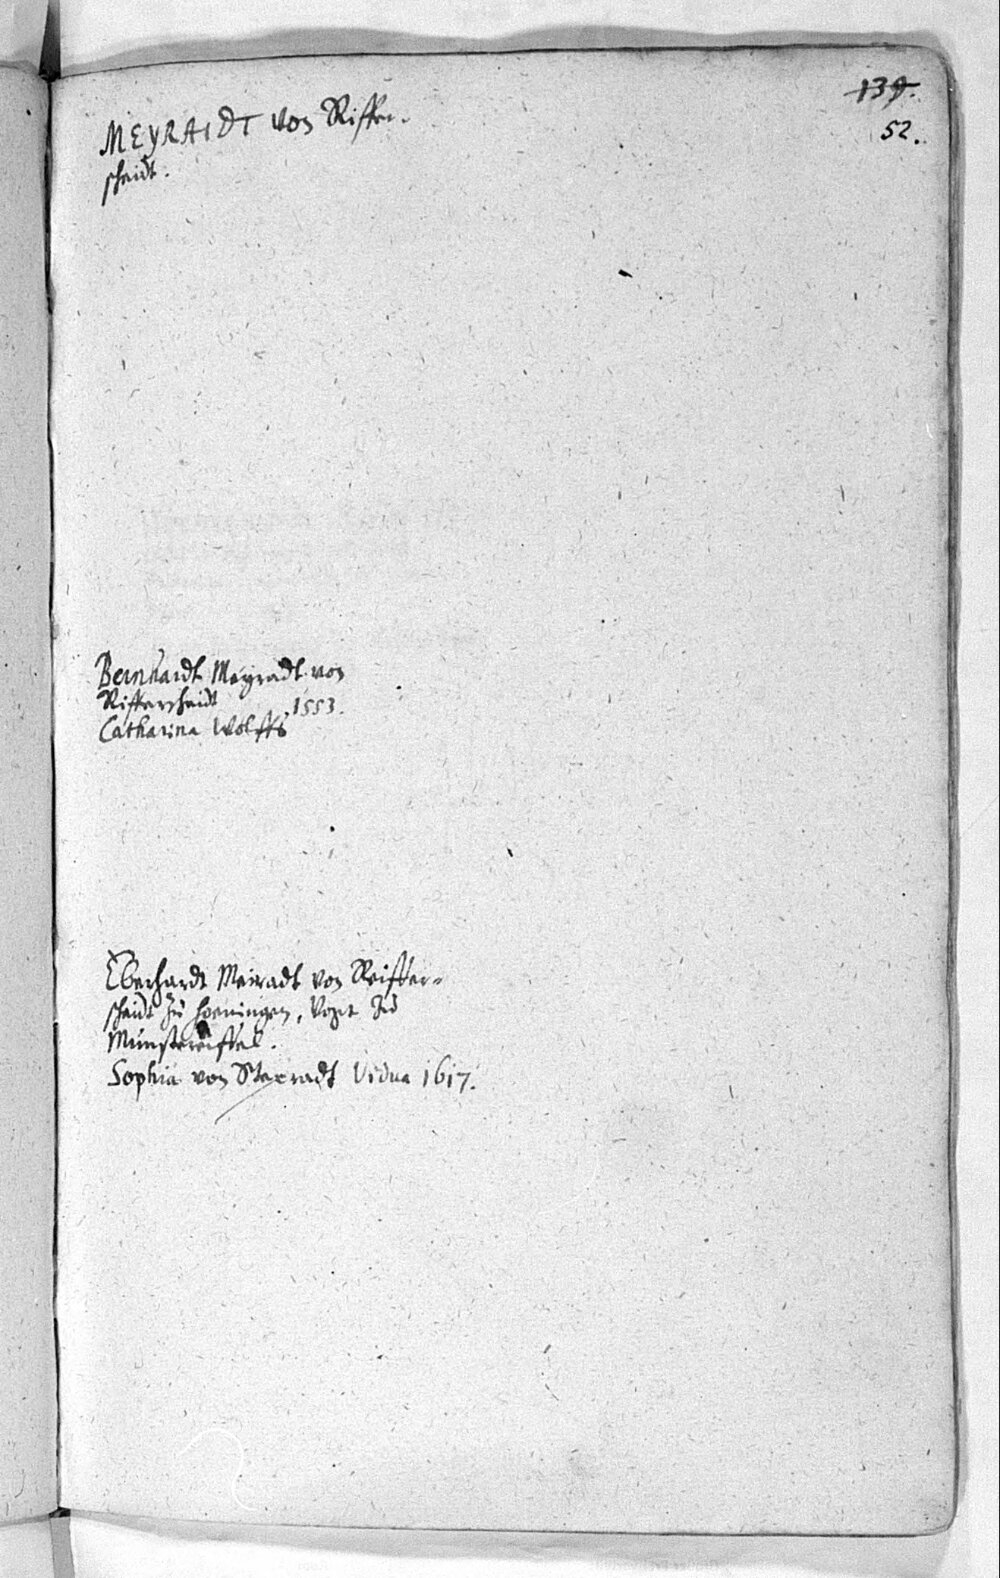 139.
52.
MEYRAIDT von Riffer-
scheidt.
Bernhardt Meyradt von
Rifferscheidt
1553.
Catharina Wolffs
Eberhardt Meiradt von Reiffer-
scheidt zu Hoeningen, Vogt zu
Münstereiffel.
Sophia von Staeradt Vidua 1617.